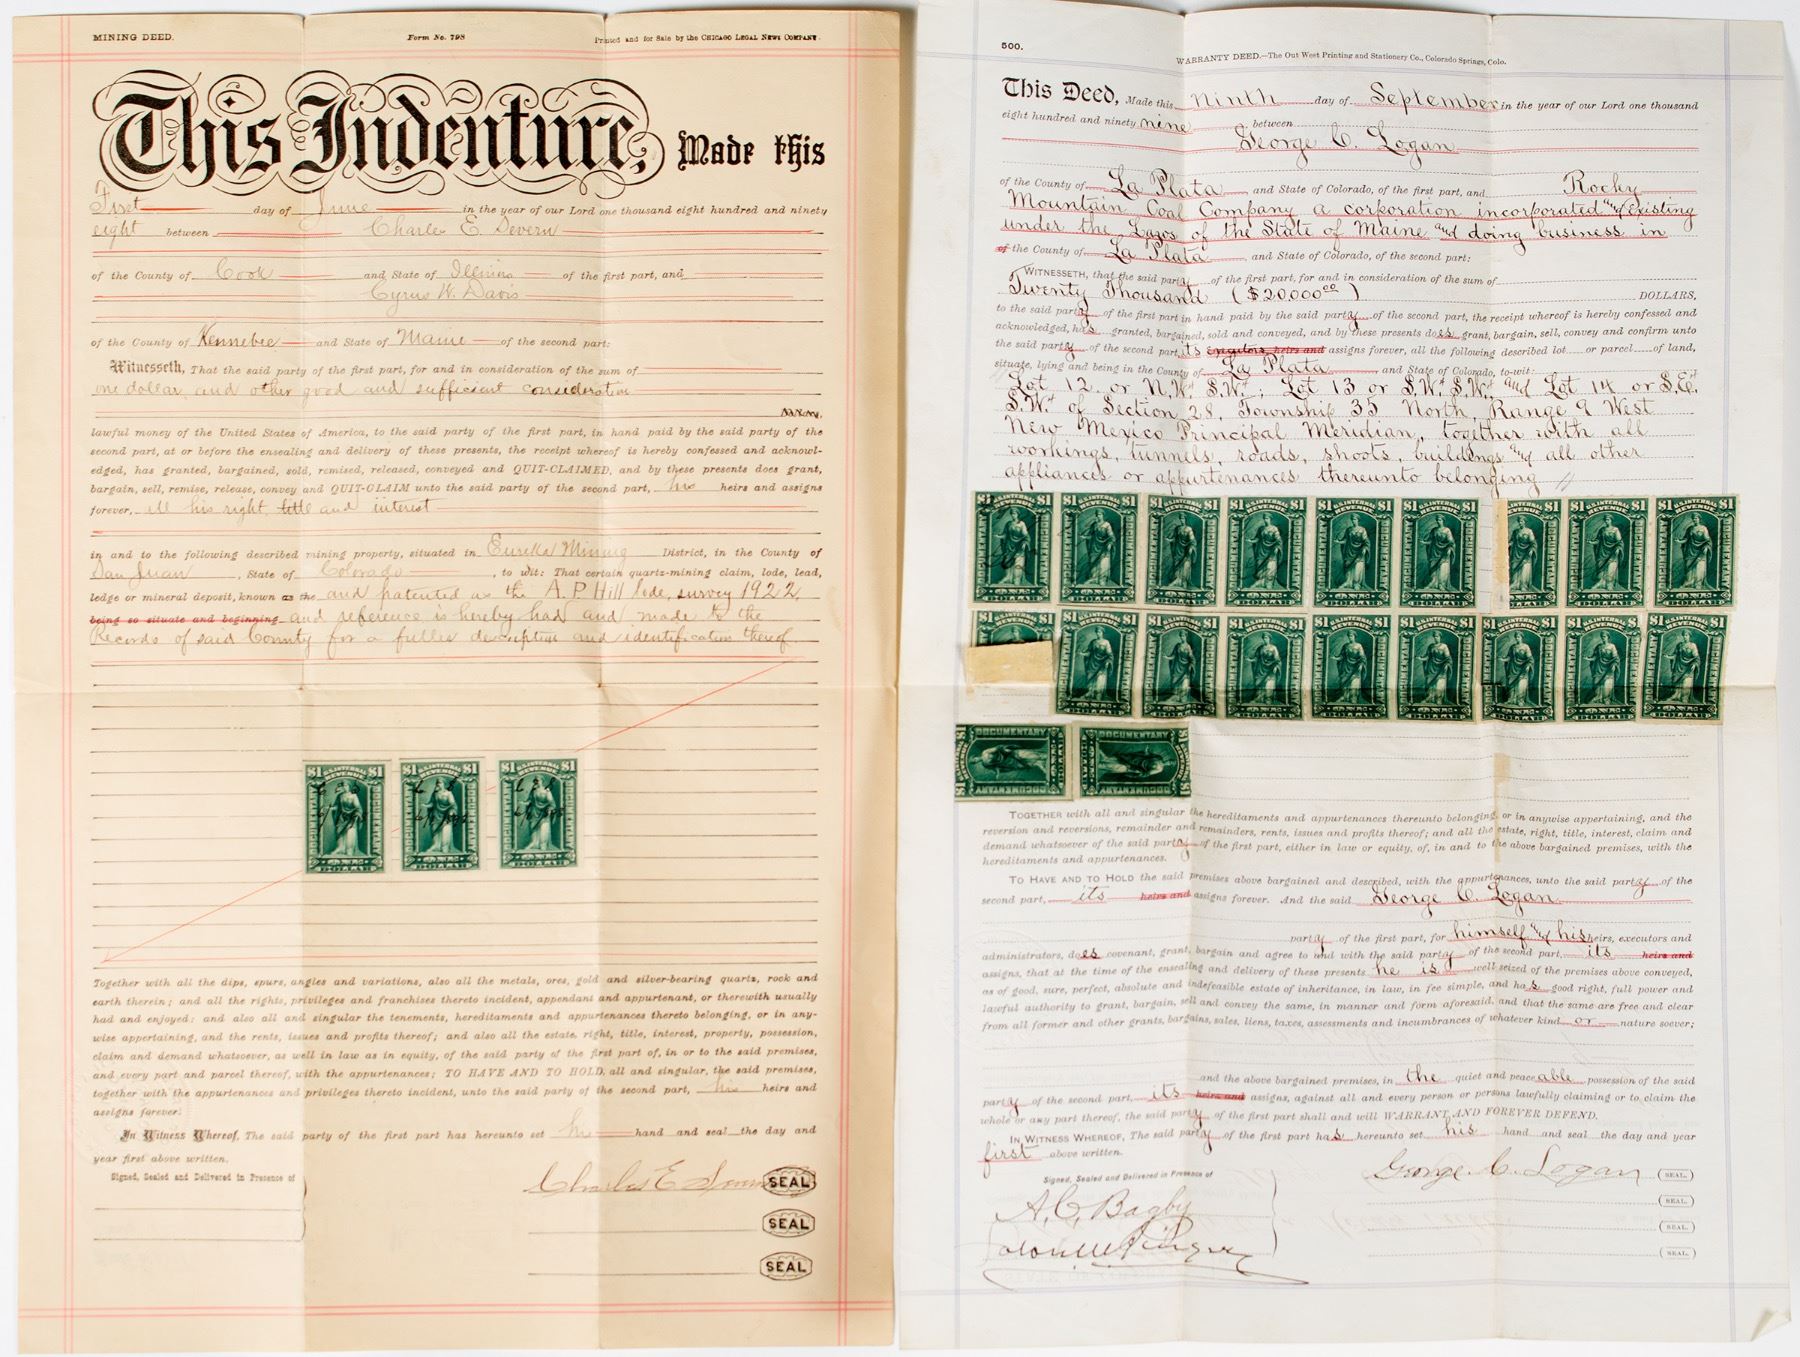 MINING DEED.
Form No. 798
Printed and for Sale by the CHICAGO LEGAL NEWS COMPANY.
This Indenture, Made this
First day of June in the year of our Lord one thousand eight hundred and ninety
eight between Charles E. Severn
of the County of Cook and State of Illinois of the first part, and
Cyrus W. Davis
of the County of Kennebec and State of Maine of the second part:
Witnesseth, That the said party of the first part, for and in consideration of the sum of
one dollar and other good and sufficient consideration
lawful money of the United States of America, to the said party of the first part, in hand paid by the said party of the
second part, at or before the ensealing and delivery of these presents, the receipt whereof is hereby confessed and acknowl-
edged, has granted, bargained, sold, remised, released, conveyed and QUIT-CLAIMED, and by these presents does grant,
bargain, sell, remise, release, convey and QUIT-CLAIM unto the said party of the second part, his heirs and assigns
forever, all his right, title and interest
in and to the following described mining property, situated in Eureka Mining District, in the County of
San Juan, State of Colorado, to wit: That certain quartz-mining claim, lode, lead,
ledge or mineral deposit, known as the and patented as the A. P. Hill lode, survey 1922
being so situate and beginning and reference is hereby had and made to the
Records of said County for a fuller description and identification thereof.
$1 U.S. INTERNAL REVENUE $1 DOCUMENTARY ONE DOLLAR
$1 U.S. INTERNAL REVENUE $1 DOCUMENTARY ONE DOLLAR
$1 U.S. INTERNAL REVENUE $1 DOCUMENTARY ONE DOLLAR
Together with all the dips, spurs, angles and variations, also all the metals, ores, gold and silver-bearing quartz, rock and
earth therein; and all the rights, privileges and franchises thereto incident, appendant and appurtenant, or therewith usually
had and enjoyed: and also all and singular the tenements, hereditaments and appurtenances thereto belonging, or in any-
wise appertaining, and the rents, issues and profits thereof; and also all the estate, right, title, interest, property, possession,
claim and demand whatsoever, as well in law as in equity, of the said party of the first part of, in or to the said premises,
and every part and parcel thereof, with the appurtenances; TO HAVE AND TO HOLD, all and singular, the said premises,
together with the appurtenances and privileges thereto incident, unto the said party of the second part, his heirs and
assigns forever.
In Witness Whereof, The said party of the first part has hereunto set his hand and seal the day and
year first above written.
Signed, Sealed and Delivered in Presence of
Charles E. Severn SEAL
SEAL
SEAL
500.
WARRANTY DEED.—The Out West Printing and Stationery Co., Colorado Springs, Colo.
This Deed, Made this Ninth day of September in the year of our Lord one thousand
eight hundred and ninety nine between
George C. Logan
of the County of La Plata and State of Colorado, of the first part, and Rocky
Mountain Coal Company a corporation incorporated and existing
under the Laws of the State of Maine and doing business in
of the County of La Plata and State of Colorado, of the second part:
WITNESSETH, that the said party of the first part, for and in consideration of the sum of
Twenty Thousand ($20,000 00) DOLLARS,
to the said party of the first part in hand paid by the said party of the second part, the receipt whereof is hereby confessed and
acknowledged, has granted, bargained, sold and conveyed, and by these presents does grant, bargain, sell, convey and confirm unto
the said party of the second part, its executors, heirs and assigns forever, all the following described lot or parcel of land,
situate, lying and being in the County of La Plata and State of Colorado, to-wit:
Lot 12 or N.W¼ S.W¼; Lot 13 or S.W¼ S.W¼ and Lot 14 or S.E¼
S.W¼ of Section 28, Township 35 North, Range 9 West
New Mexico Principal Meridian, together with all
workings, tunnels, roads, shoots, buildings and all other
appliances or appurtenances thereunto belonging
TOGETHER with all and singular the hereditaments and appurtenances thereunto belonging, or in anywise appertaining, and the
reversion and reversions, remainder and remainders, rents, issues and profits thereof; and all the estate, right, title, interest, claim and
demand whatsoever of the said party of the first part, either in law or equity, of, in and to the above bargained premises, with the
hereditaments and appurtenances.
TO HAVE AND TO HOLD the said premises above bargained and described, with the appurtenances, unto the said party of the
second part, its heirs and assigns forever. And the said George C. Logan
party of the first part, for himself and his heirs, executors and
administrators, does covenant, grant, bargain and agree to and with the said party of the second part, its heirs and
assigns, that at the time of the ensealing and delivery of these presents he is well seized of the premises above conveyed,
as of good, sure, perfect, absolute and indefeasible estate of inheritance, in law, in fee simple, and has good right, full power and
lawful authority to grant, bargain, sell and convey the same, in manner and form aforesaid, and that the same are free and clear
from all former and other grants, bargains, sales, liens, taxes, assessments and incumbrances of whatever kind or nature soever;
and the above bargained premises, in the quiet and peaceable possession of the said
party of the second part, its heirs and assigns, against all and every person or persons lawfully claiming or to claim the
whole or any part thereof, the said party of the first part shall and will WARRANT AND FOREVER DEFEND.
IN WITNESS WHEREOF, The said party of the first part has hereunto set his hand and seal the day and year
first above written.
Signed, Sealed and Delivered in Presence of
George C. Logan (SEAL.)
A. C. Bagby (SEAL.)
(SEAL.)
(SEAL.)